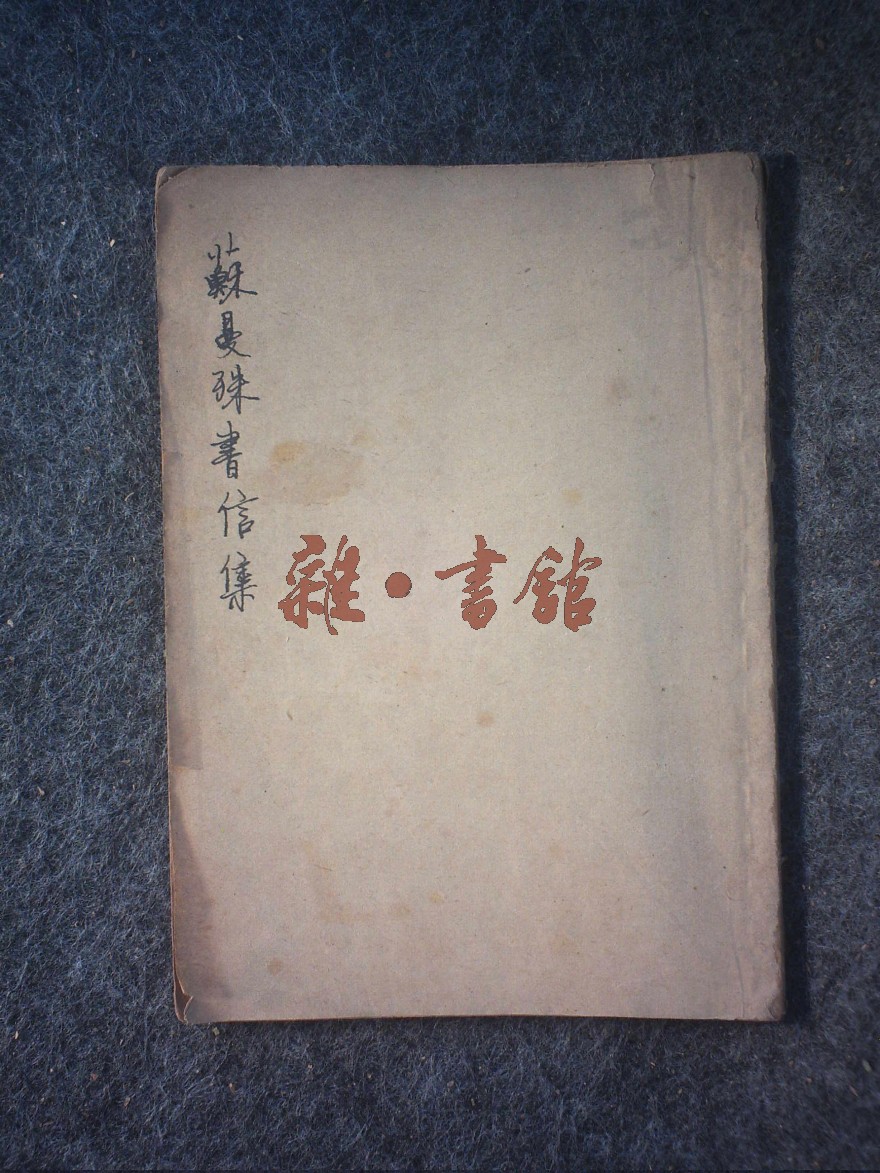 蘇曼殊書信集
雜·書館